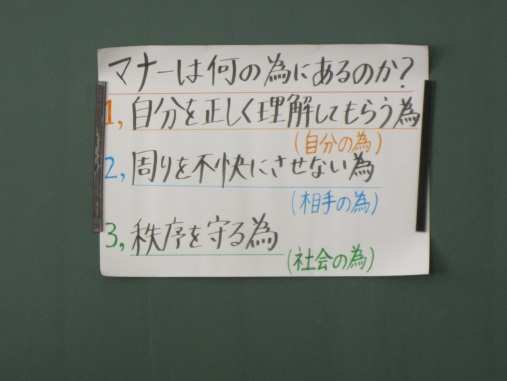 マナーは何の為にあるのか?
1, 自分を正しく理解してもらう為
(自分の為)
2, 周りを不快にさせない為
(相手の為)
3, 秩序を守る為
(社会の為)